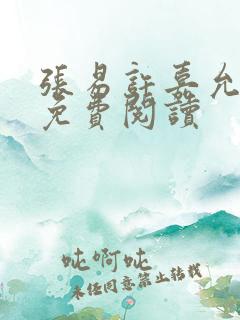 張易許嘉允
免費閱讀
吨啊吨
未经同意禁止转载